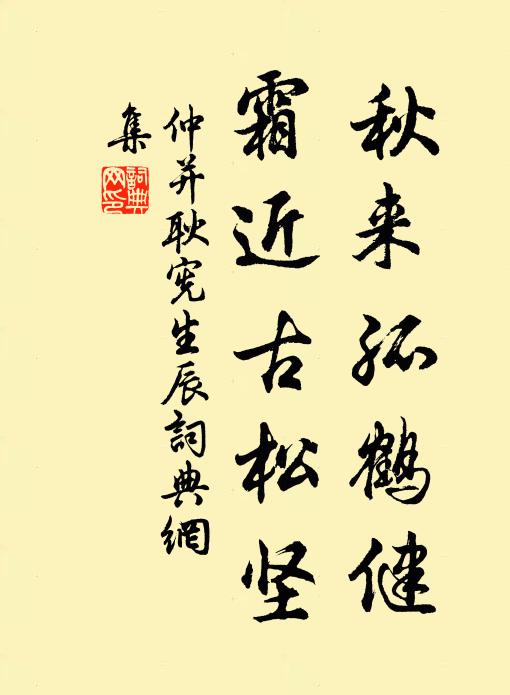 秋来孤鹤健
霜近古松坚
仲并耿宪生辰詞典網
集
詞典网印